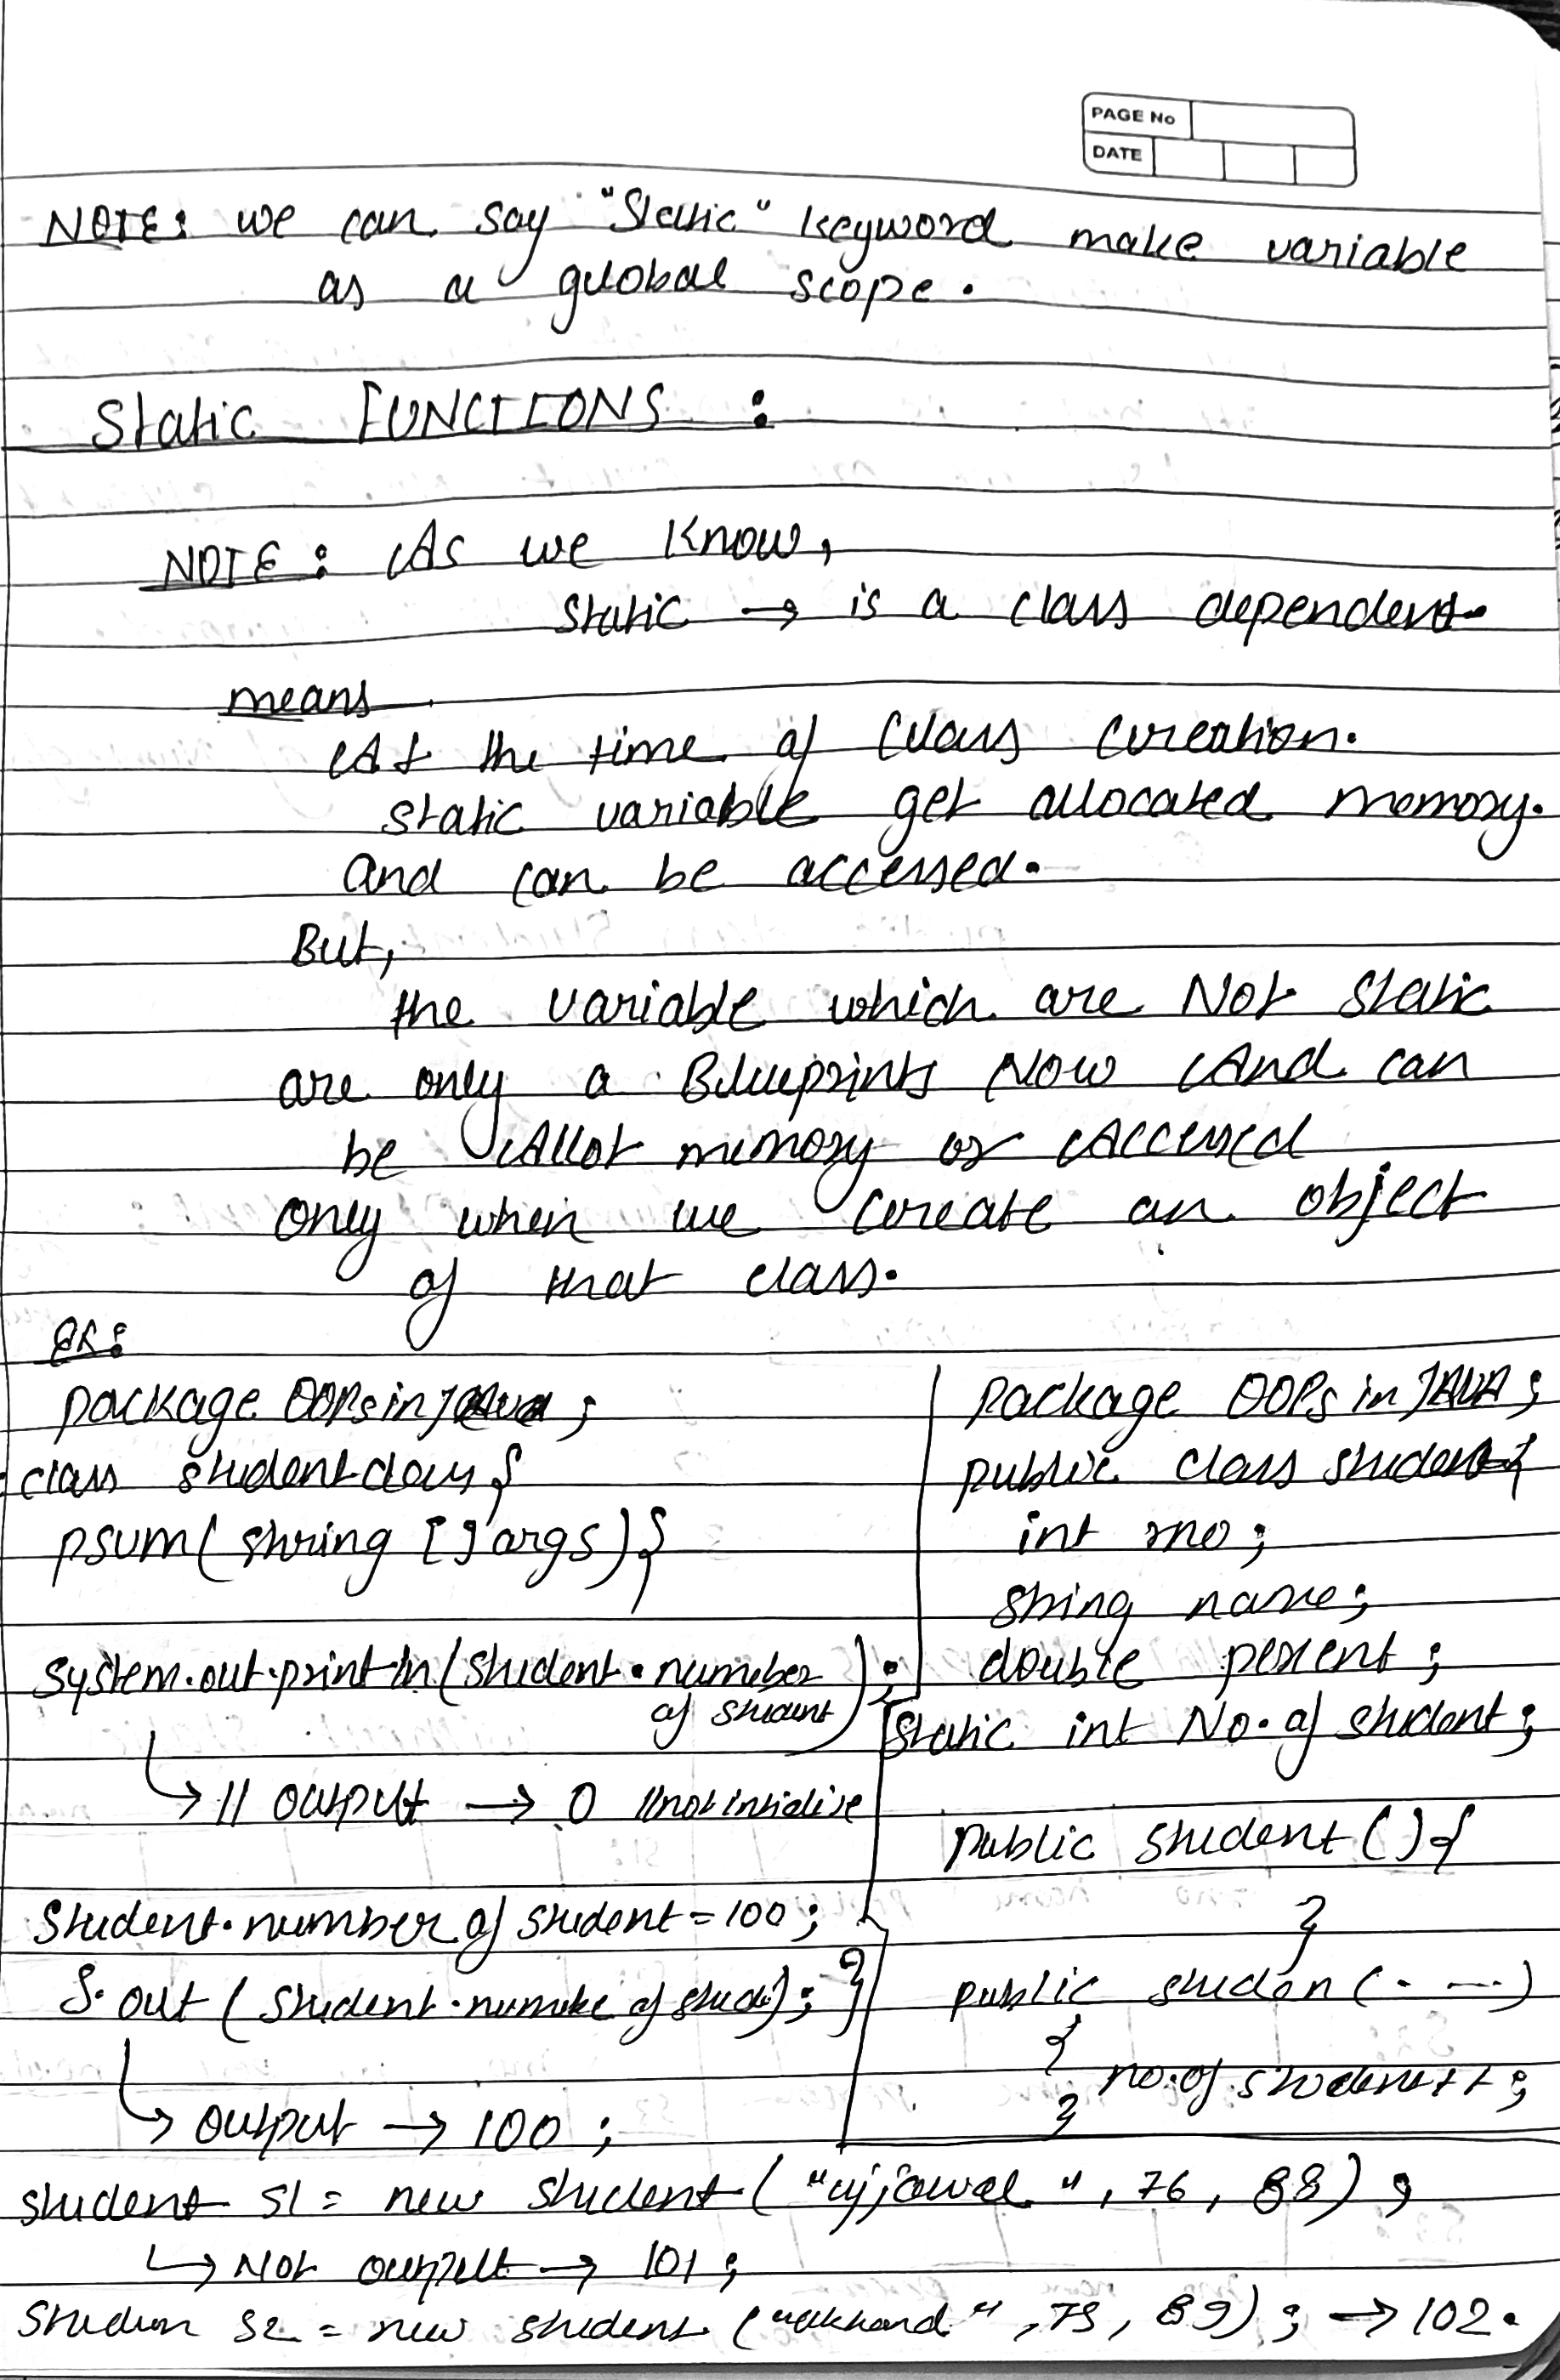 PAGE No
DATE
NOTE: we can say "Static" keyword make variable
as a global scope.
Static FUNCTIONS :
NOTE: As we know,
static → is a class dependent.
means
At the time of class creation.
static variable get allocated memory.
and can be accessed.
But,
the variable which are Not static
are only a Blueprints Now And can
be Allot memory or Accessed
only when we create an object
of that class.
ex:
package OOPsinJava;
class studentclass {
psum(string []args){
system.out.println(student.number
of student);
↳ // output → 0 //not intialise
Student.number of student = 100;
S.out (student.number of stud); }
↳ output → 100 ;
package OOPs in JAVA;
public class student{
int rno;
string name;
double percent;
static int No. of student;
public student () {
}
public studen (- ---)
{
no. of student++;
}
student s1 = new student ("ujjawal", 76, 88) ;
↳ Not output → 101 ;
Studen s2 = new student (" ", 79, 89) ; → 102.